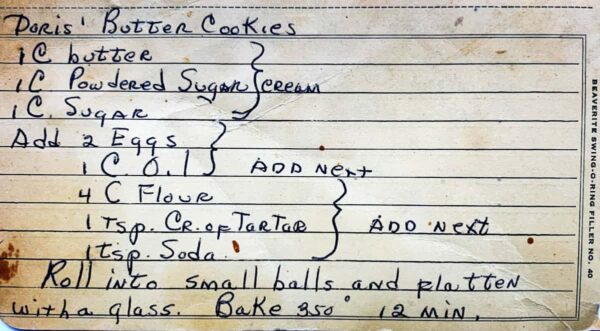 Doris' Butter Cookies
1 C butter
1 C Powdered Sugar CREAM
1 C. Sugar
Add 2 Eggs
1 C. Oil ADD Next
4 C Flour
1 Tsp. CR. of TarTar ADD Next
1 tsp. Soda
Roll into small balls and flatten
with a glass. Bake 350° 12 min.
BEAVERITE SWING-O-RING FILLER NO. 40